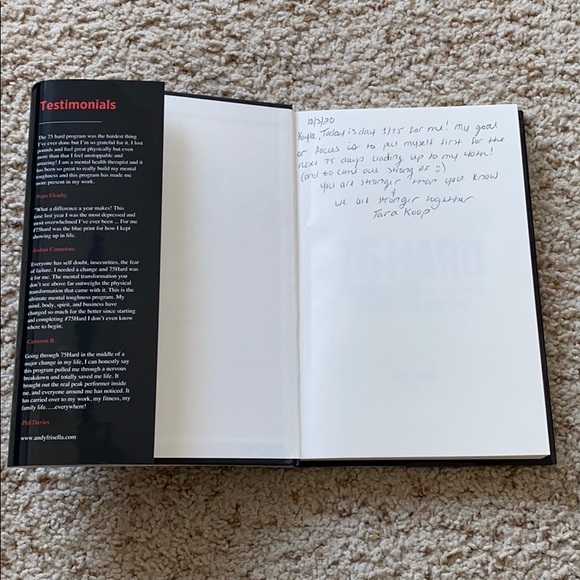 Testimonials
The 75 hard program was the hardest thing
I've ever done but I'm so grateful for it. I lost
pounds and feel great physically but even
more than that I feel unstoppable and
amazing! I am a mental health therapist and it
has been so great to really build my mental
toughness and this program has made me
more present in my work.
"What a difference a year makes! This
time last year I was the most depressed and
most overwhelmed I've ever been ... For me
#75hard was the blue print for how I kept
showing up in life.
Everyone has self doubt, insecurities, the fear
of failure. I needed a change and 75Hard was
it for me. The mental transformation you
don't see above far outweighs the physical
transformation that came with it. This is the
ultimate mental toughness program. My
mind, body, spirit, and business have
changed so much for the better since starting
and completing #75Hard I don't even know
where to begin.
Cameron B.
Going through 75Hard in the middle of a
major change in my life, I can honestly say
this program pulled me through a nervous
breakdown and totally saved me life. It
brought out the real peak performer inside
me, and everyone around me has noticed. It
has carried over to my work, my fitness, my
family life.....everywhere!
Phil Davies
www.andyfrisella.com
10/3/20
Kayla, Today is day 1/75 for me! My goal
or focus is to put myself first for the
next 75 days leading up to my 40th!
(and to come out strong AF :)
You are stronger than you know
&
we are stronger together
Tara Koop